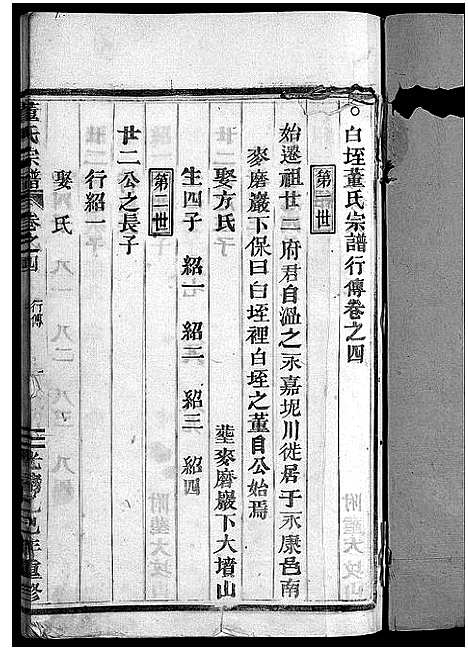 白垤董氏宗譜行傳卷之四
第一世
始遷祖廿二府君自溫之永嘉坭川徙居于永康邑南
麥磨巖下保曰白垤裡白垤之董自公始焉
娶方氏 塟麥磨巖下大墳山
生四子 紹一 紹二 紹三 紹四
第二世
廿二公之長子
行紹一
娶 氏
董氏宗譜 卷之四 行傳
年重修